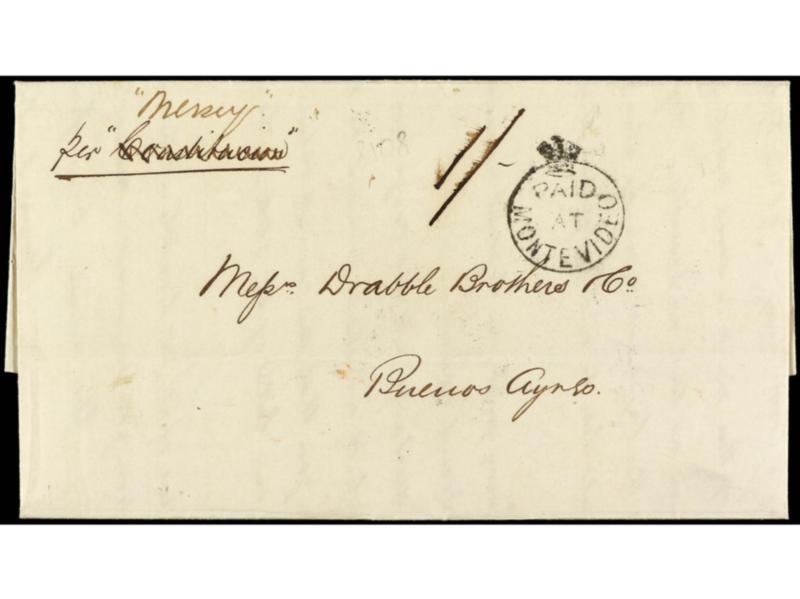 "Mersey"
per "Constitucion"
1/-
PAID
AT
MONTEVIDEO
Messrs. Drabble Brothers & Co
Buenos Ayres.